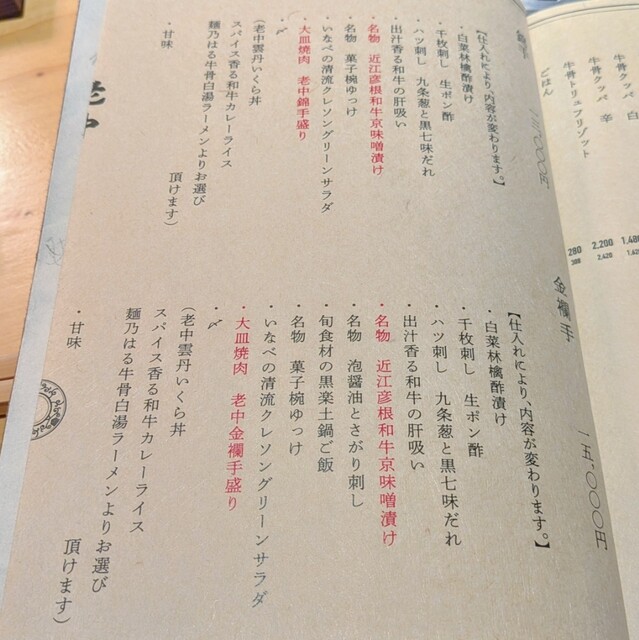 牛骨クッパ 白 1,480
牛骨クッパ 辛 2,200
2,420
牛骨トリュフリゾット
ごはん 280
308
錦手
【仕入れにより、内容が変わります。】
・白菜林檎酢漬け
・千枚刺し 生ポン酢
・ハツ刺し 九条葱と黒七味だれ
・出汁香る和牛の肝吸い
・名物 近江彦根和牛京味噌漬け
・名物 菓子椀ゆっけ
・いなべの清流クレソングリーンサラダ
・大皿焼肉 老中錦手盛り
・〆
(老中雲丹いくら丼
スパイス香る和牛カレーライス
麺乃はる牛骨白湯ラーメンよりお選び
頂けます)
・甘味
金襴手 一五,〇〇〇円
【仕入れにより、内容が変わります。】
・白菜林檎酢漬け
・千枚刺し 生ポン酢
・ハツ刺し 九条葱と黒七味だれ
・出汁香る和牛の肝吸い
・名物 近江彦根和牛京味噌漬け
・名物 泡醤油とさがり刺し
・旬食材の黒楽土鍋ご飯
・名物 菓子椀ゆっけ
・いなべの清流クレソングリーンサラダ
・大皿焼肉 老中金襴手盛り
・〆
(老中雲丹いくら丼
スパイス香る和牛カレーライス
麺乃はる牛骨白湯ラーメンよりお選び
頂けます)
・甘味